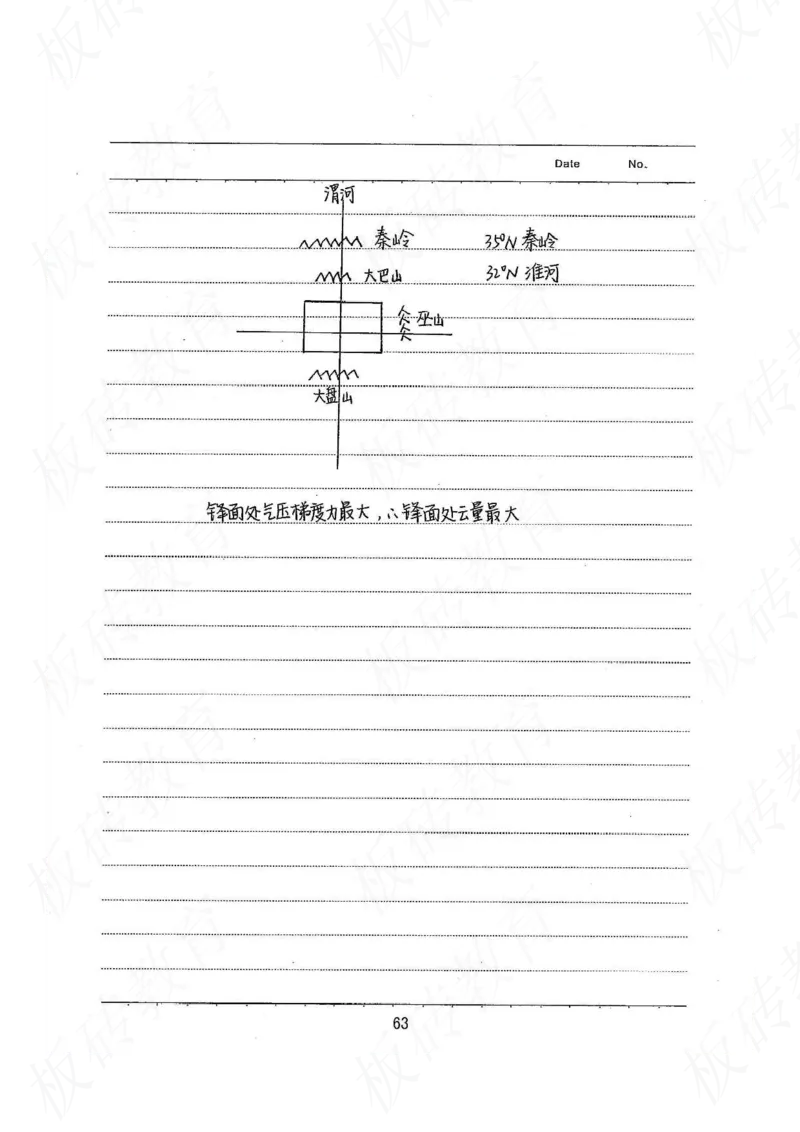 Date No.
渭河
秦岭 35°N 秦岭
大巴山 32°N 淮河
巫山
大盘山
锋面处气压梯度力最大，∴锋面处云量最大
63
板砖教育